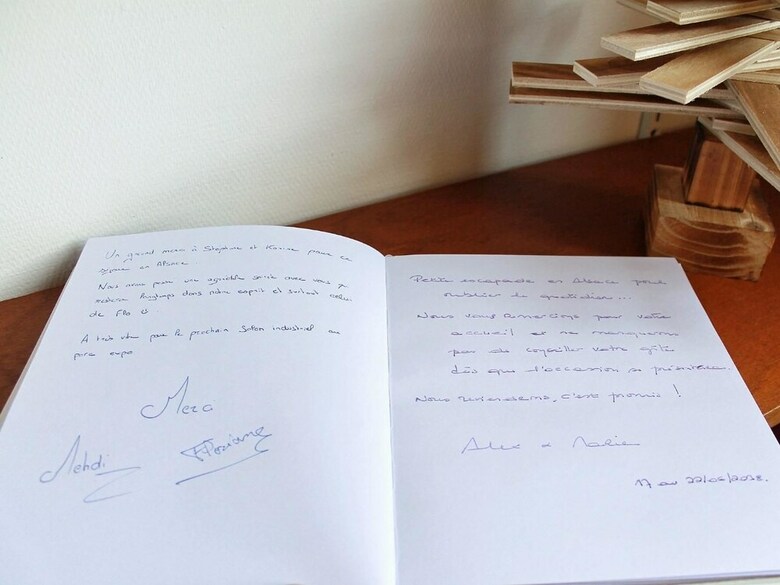 Un grand merci à Stéphane et Karine pour ce
séjour en Alsace.
Nous avons passé une agréable soirée avec vous qui
restera longtemps dans notre esprit et surtout celui
de
A très vite pour le prochain Salon industriel au
parc expo
Merci
Mehdi Floriane
Petite escapade en Alsace pour
oublier le quotidien...
Nous vous remercions pour votre
accueil et ne manquerons
pas de conseiller votre gîte
dès que l'occasion se présentera.
Nous reviendrons, c'est promis !
Alex &
17 au 22/06/2018.